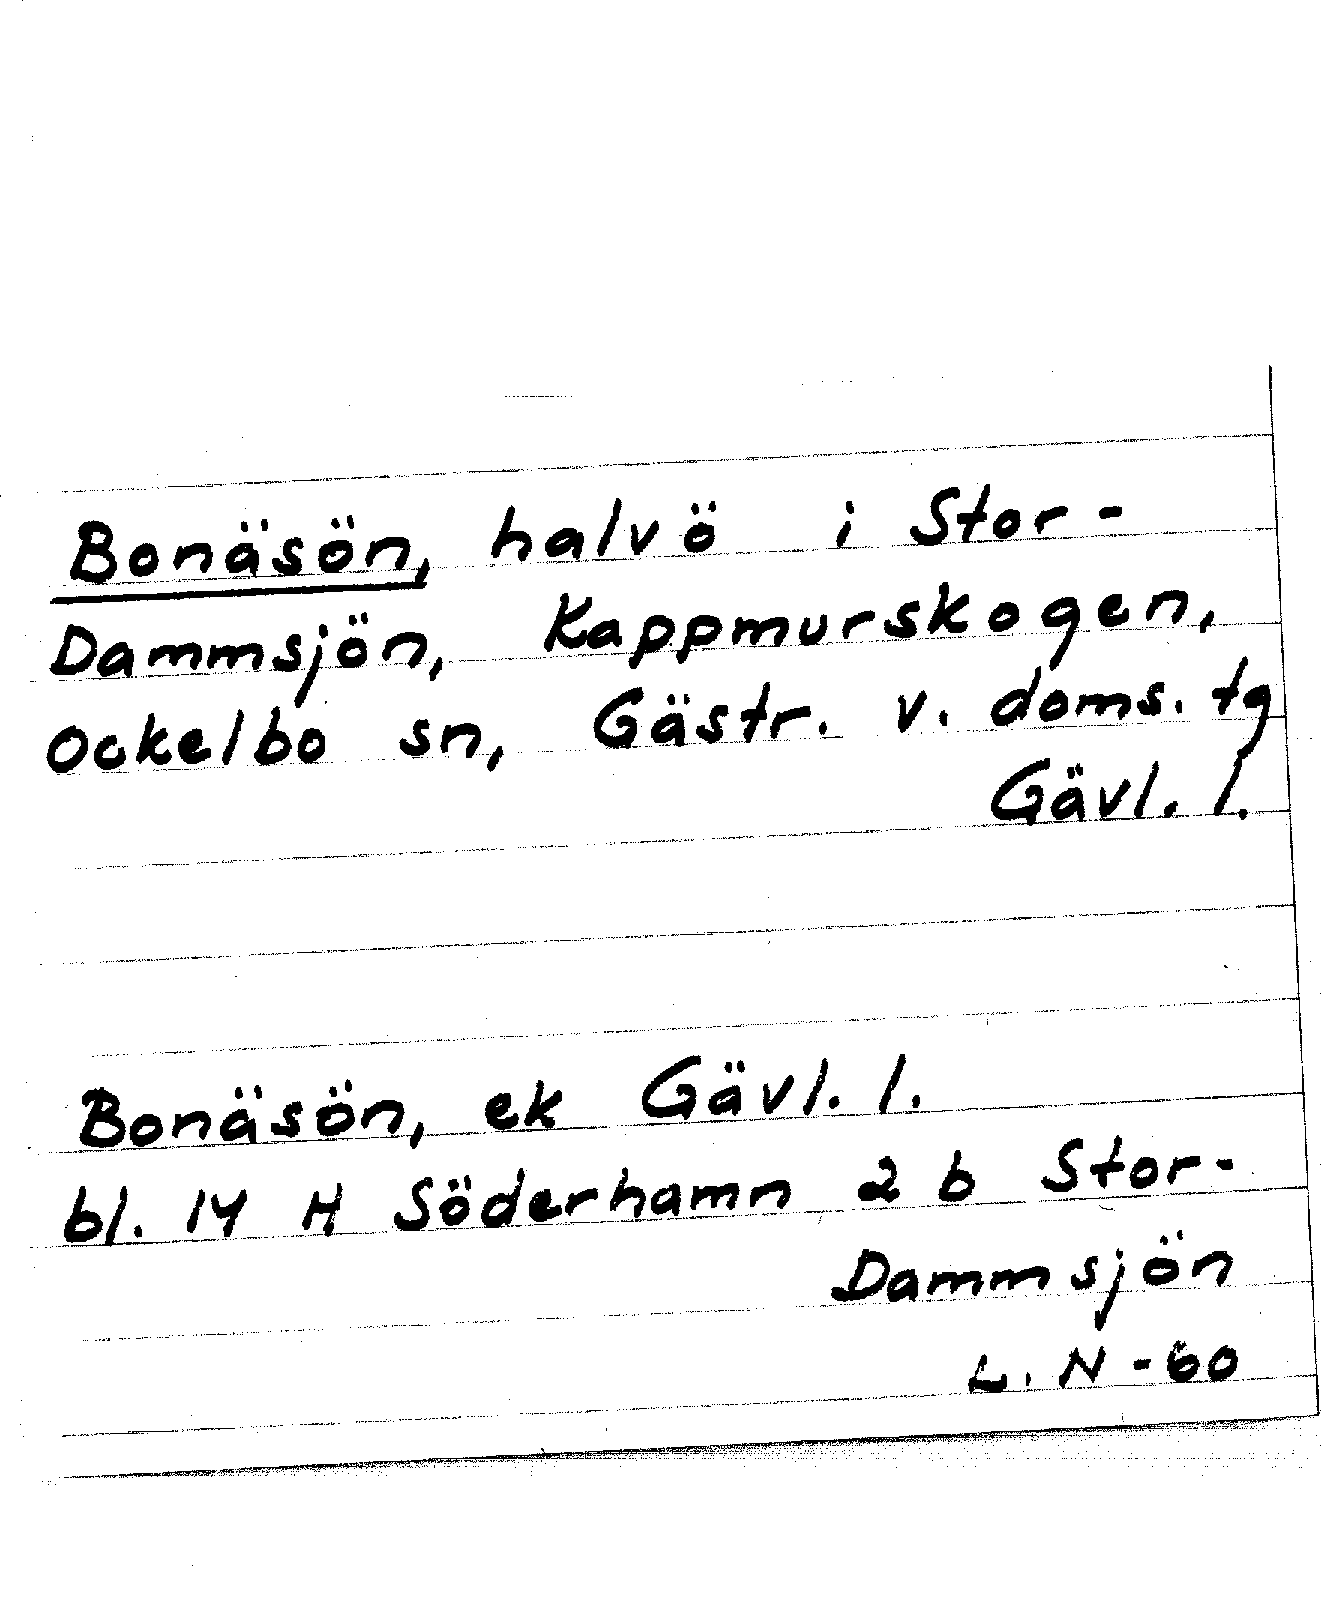 Bonäsön, halvö i Stor-
Dammsjön, Kappmurskogen,
Ockelbo sn, Gästr. v. doms. tg
Gävl. l.
Bonäsön, ek Gävl. l.
bl. 14 H Söderhamn 2 b Stor-
Dammsjön
L. N -60